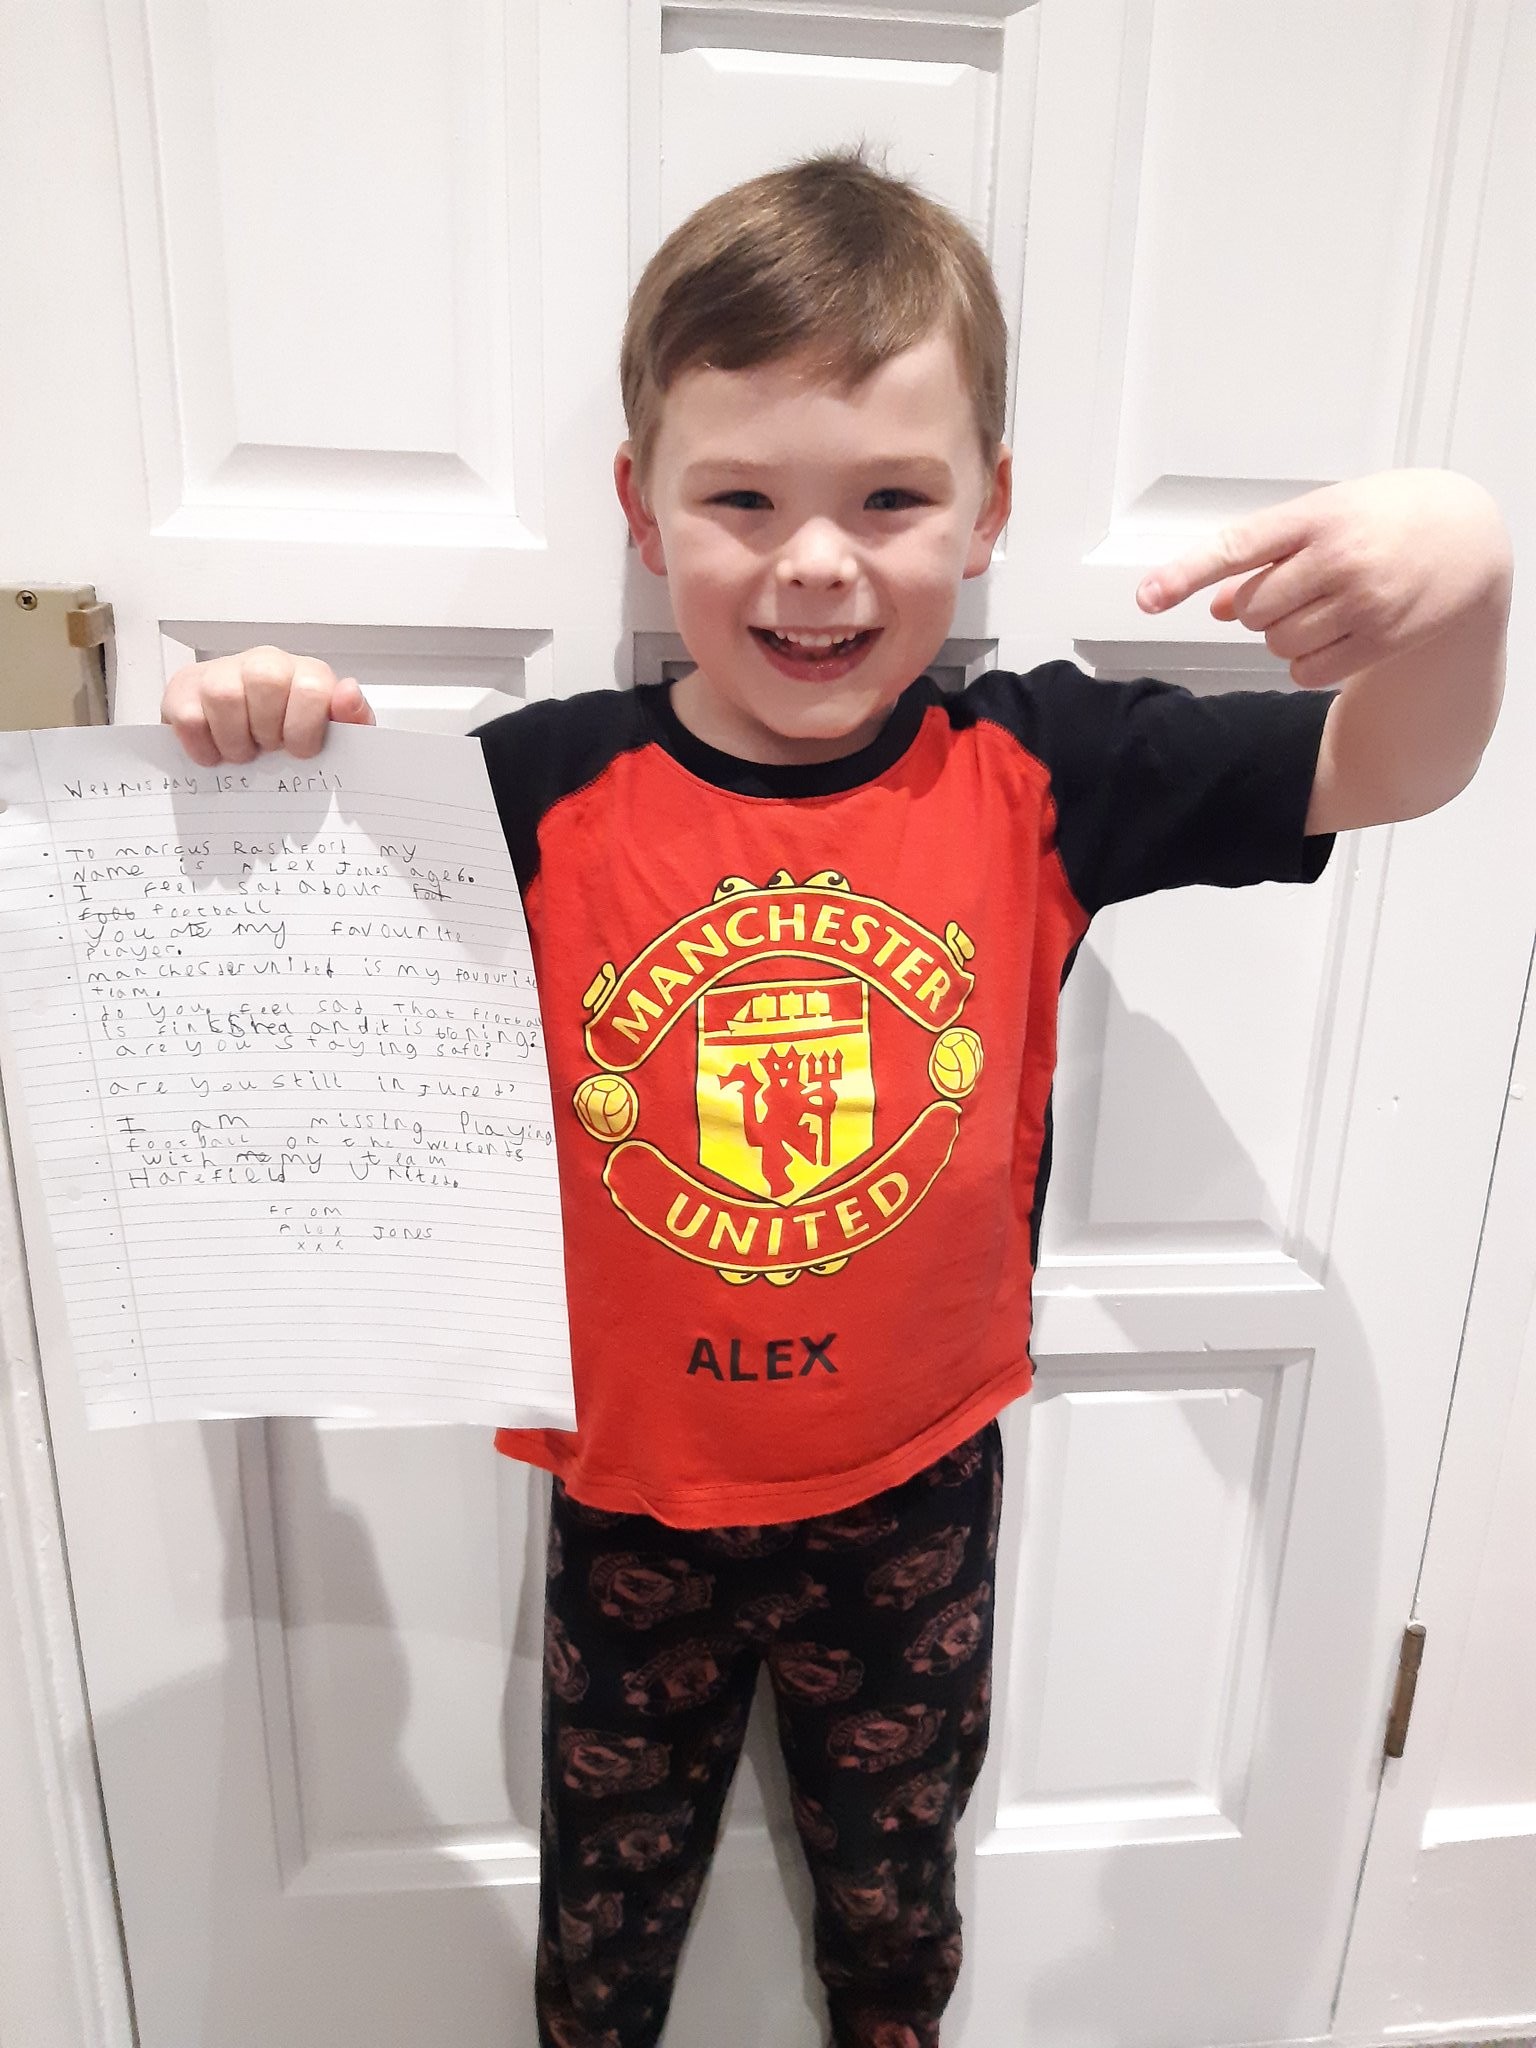 Wednesday 1st April
To marcus Rashford my
Name is ALEX Jones age 6.
I feel sad about foot
fotb football
you are my favourite
player.
manchester united is my favourite
team.
do you feel sad that football
is finished and it is boring?
are you staying safe?
are you still injured?
I am missing Playing
football on the weekends
with me my team
Harefield United.
From
Alex Jones
x x x
MANCHESTER
UNITED
ALEX